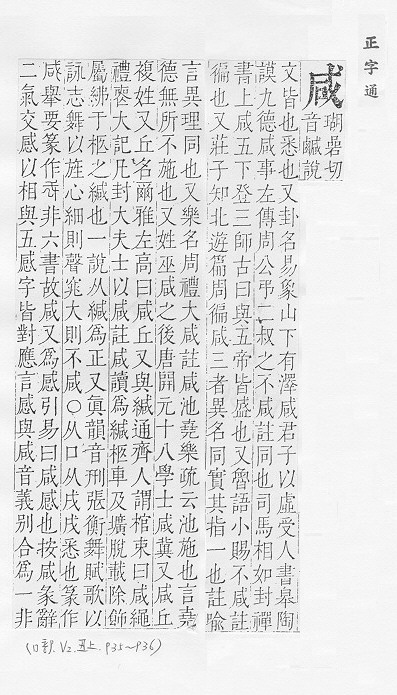 正字通
咸
瑚喦切
音醎說
文皆也悉也又卦名易象山下有澤咸君子以虛受人書皋陶
謨九德咸事左傳周公弔二叔之不咸註同也司馬相如封禪
書上咸五下登三師古曰與五帝皆盛也又魯語小賜不咸註
徧也又莊子知北遊篇周徧咸三者異名同實其指一也註喩
言異理同也又樂名周禮大咸註咸池堯樂疏云池施也言堯
德無所不施也又姓巫咸之後唐開元十八學士咸冀又咸丘
複姓又丘名爾雅左高曰咸丘又與緘通齊人謂棺束曰咸繩
禮喪大記凡封大夫士以咸註咸讀爲緘柩車及壙脫載除飾
屬紼于柩之緘也一說从緘爲正又眞韻音刑張衡舞賦歌以
詠志舞以旌心細則聲窕大則不咸○从口从戌戌悉也篆作
咸舉要篆作非六書故咸又爲感引易曰咸感也按咸彖辭
二氣交感以相與五感字皆對應言感與咸音義別合爲一非
(口部. V2. 丑上. P35~P36)